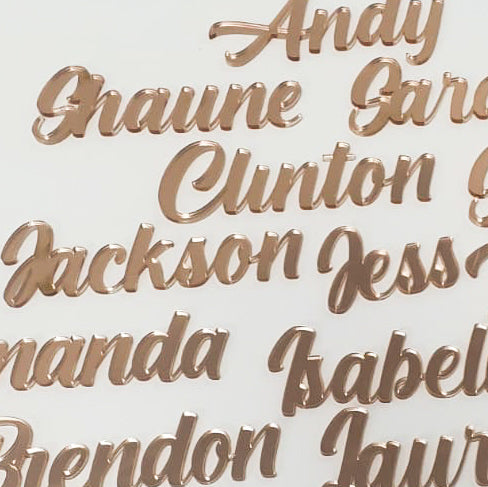 Andy
Shaune Sara
Clinton
Jackson Jess
manda Isabell
Brendon Laur